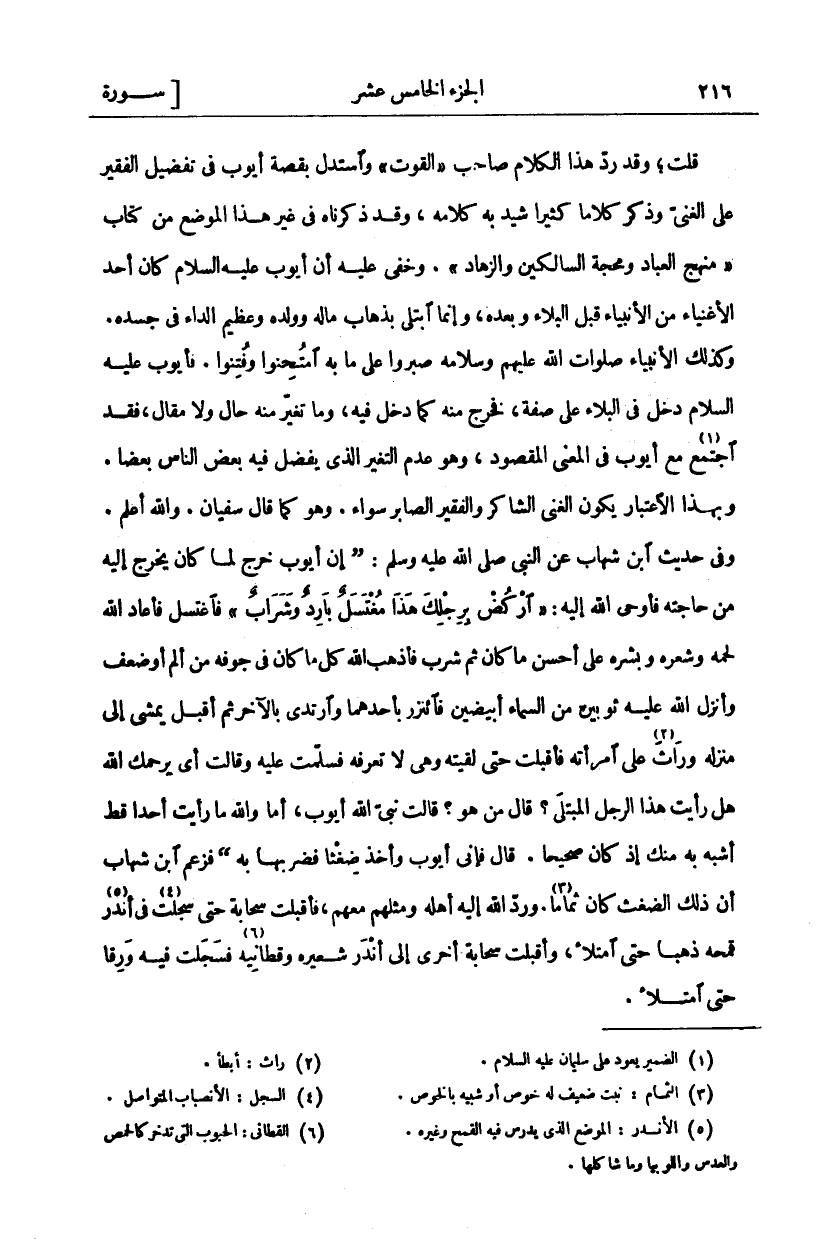 ٢١٦ الجزء الخامس عشر [ ســورة
قلت؛ وقد ردّ هذا الكلام صاحب «القوت» وٱستدل بقصة أيوب فى تفضيل الفقير
على الغنىّ وذكر كلاما كثيرا شيد به كلامه ، وقــد ذكرناه فى غير هــذا الموضع من كتاب
« منهج العباد ومحجة السالكين والزهاد » . وخفى عليــه أن أيوب عليــه السلام كان أحد
الأغنياء من الأنبياء قبل البلاء وبعده، وإنما ٱبتلى بذهاب ماله وولده وعظيم الداء فى جسده.
وكذلك الأنبياء صلوات الله عليهم وسلامه صبروا على ما به ٱمتُحِنوا وفُتِنوا . فأيوب عليــه
السلام دخل فى البلاء على صفة، فخرج منه كما دخل فيه، وما تغيّر منه حال ولا مقال، فقــد
ٱجتمع (١) مع أيوب فى المعنى المقصود ، وهو عدم التغير الذى يفضل فيه بعض الناس بعضا .
وبهــذا الاعتبار يكون الغنى الشاكر والفقير الصابر سواء . وهو كما قال سفيان . والله أعلم .
وفى حديث ٱبن شهاب عن النبى صلى الله عليه وسلم : ” إن أيوب خرج لمــا كان يخرج إليه
من حاجته فأوحى الله إليه : « ٱرْكُضْ بِرِجْلِكَ هَذَا مُغْتَسَلٌ بَارِدٌ وَشَرَابٌ » فٱغتسل فأعاد الله
لحمه وشعره وبشره على أحسن ما كان ثم شرب فأذهب الله كل ما كان فى جوفه من ألم أو ضعف
وأنزل الله عليــه ثوبين من السماء أبيضين فٱئتزر بأحدهما وٱرتدى بالآخر ثم أقبــل يمشى إلى
منزله ورَاثَ (٢) على ٱمرأته فأقبلت حتى لقيته وهى لا تعرفه فسلّمت عليه وقالت أى يرحمك الله
هل رأيت هذا الرجل المبتلَى ؟ قال من هو ؟ قالت نبىّ الله أيوب، أما والله ما رأيت أحدا قط
أشبه به منك إذ كان صحيحا . قال فإنى أيوب وأخذ ضِغْثا فضربهــا به “ فزعم ٱبن شهاب
أن ذلك الضغث كان ثُمامًا (٣). وردّ الله إليه أهله ومثلهم معهم، فأقبلت سحابة حتى سجلت (٤) فى أَنْدَر (٥)
قمحه ذهبــا حتى ٱمتلأ ، وأقبلت سحابة أخرى إلى أَنْدَر شــعيره وقطانِيه (٦) فسَجَلت فيــه وَرِقا
حتى ٱمتــلأ .
(١) الضمير يعود على سليمان عليه السلام . (٢) راث : أبطأ .
(٣) الثمام : نبت ضعيف له خوص أو شبيه بالخوص . (٤) السجل : الانصباب المتواصل .
(٥) الأنــدر : الموضع الذى يدرس فيه القمح وغيره . (٦) القطانى : الحبوب التى تدخر كالحمص
والعدس واللوبيا وما شاكلها .